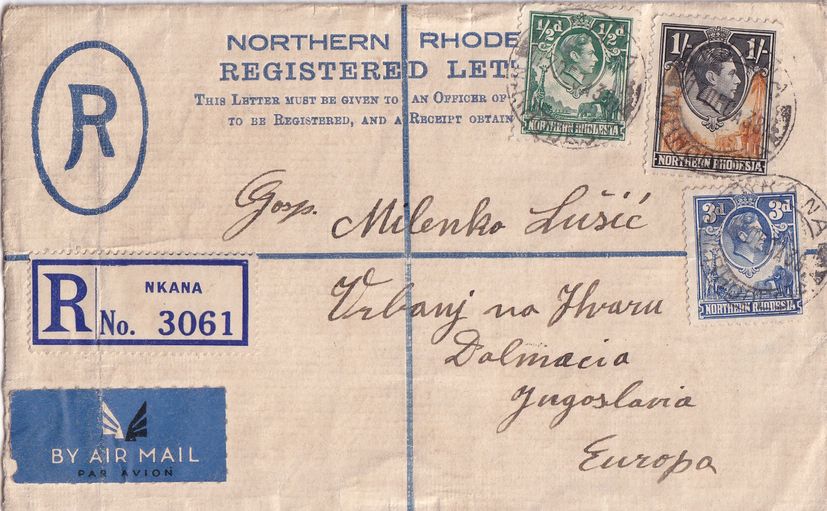 NORTHERN RHODE
REGISTERED LET
THIS LETTER MUST BE GIVEN TO AN OFFICER OF
TO BE REGISTERED, AND A RECEIPT OBTAIN
R
½d ½d
NORTHERN RHODESIA
1/- 1/-
NORTHERN RHODESIA
3d 3d
NORTHERN RHODESIA
NKANA
Gosp. Milenko Lušić
Vrbanj na Hvaru
Dalmacia
Jugoslavia
Europa
R NKANA
No. 3061
BY AIR MAIL
PAR AVION